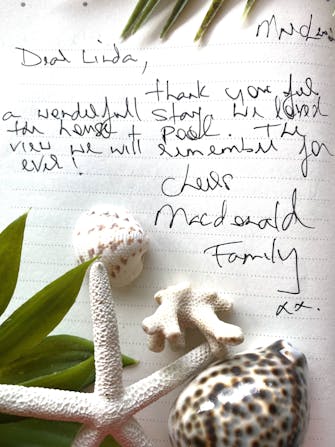 Dear Linda,
thank you for
a wonderfull stay we loved
the house + Pool. The
view we will remember for
ever!
cheers
Macdonald
Family
xx.